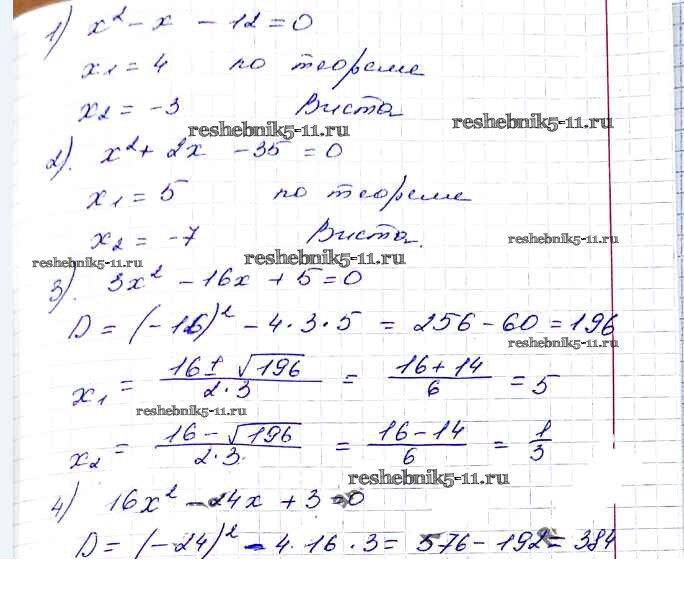 1) x² - x - 12 = 0
x₁ = 4 по теореме
x₂ = -3 Виета
reshebnik5-11.ru reshebnik5-11.ru
2). x² + 2x - 35 = 0
x₁ = 5 по теореме
x₂ = -7 Виета.
reshebnik5-11.ru reshebnik5-11.ru reshebnik5-11.ru
3). 3x² - 16x + 5 = 0
D = (-16)² - 4·3·5 = 256 - 60 = 196
reshebnik5-11.ru
x₁ = (16 + √196)/(2·3) = (16 + 14)/6 = 5
reshebnik5-11.ru
x₂ = (16 - √196)/(2·3) = (16 - 14)/6 = 1/3
reshebnik5-11.ru
4) 16x² - 24x + 3 = 0
D = (-24)² - 4·16·3 = 576 - 192 = 384